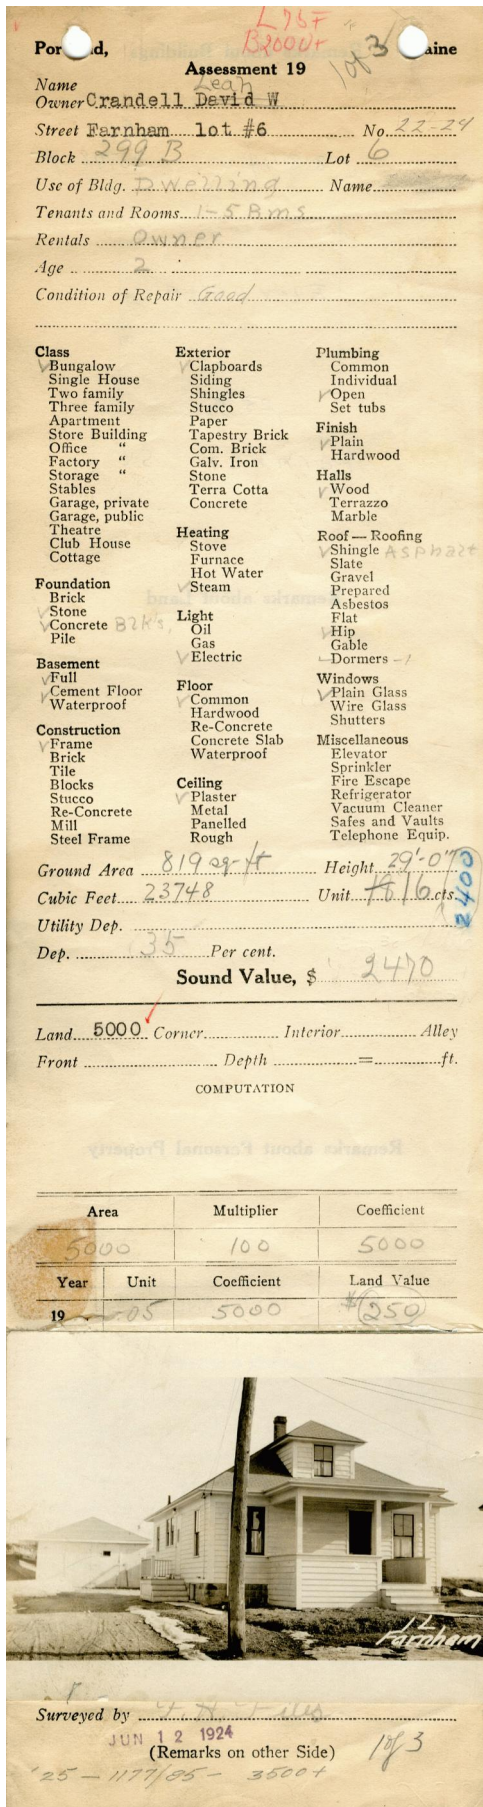 L 75 F
B2000+
1 of 3
Por nd, aine
Assessment 19
Name Leah
Owner Crandell David W
Street Farnham lot #6 No. 22-24
Block 299 B Lot 6
Use of Bldg. Dwelling Name
Tenants and Rooms 1-5 Rms
Rentals Owner
Age 2
Condition of Repair Good
Class
Bungalow
Single House
Two family
Three family
Apartment
Store Building
Office "
Factory "
Storage "
Stables
Garage, private
Garage, public
Theatre
Club House
Cottage
Foundation
Brick
Stone
Concrete Blks.
Pile
Basement
Full
Cement Floor
Waterproof
Construction
Frame
Brick
Tile
Blocks
Stucco
Re-Concrete
Mill
Steel Frame
Exterior
Clapboards
Siding
Shingles
Stucco
Paper
Tapestry Brick
Com. Brick
Galv. Iron
Stone
Terra Cotta
Concrete
Heating
Stove
Furnace
Hot Water
Steam
Light
Oil
Gas
Electric
Floor
Common
Hardwood
Re-Concrete
Concrete Slab
Waterproof
Ceiling
Plaster
Metal
Panelled
Rough
Plumbing
Common
Individual
Open
Set tubs
Finish
Plain
Hardwood
Halls
Wood
Terrazzo
Marble
Roof — Roofing
Shingle Asphalt
Slate
Gravel
Prepared
Asbestos
Flat
Hip
Gable
Dormers - 1
Windows
Plain Glass
Wire Glass
Shutters
Miscellaneous
Elevator
Sprinkler
Fire Escape
Refrigerator
Vacuum Cleaner
Safes and Vaults
Telephone Equip.
Ground Area 819 sq-ft Height 29'-0"
Cubic Feet 23748 Unit 16 cts.
2400
Utility Dep.
Dep. 35 Per cent.
Sound Value, $ 2470
Land 5000 Corner Interior Alley
Front Depth = ft.
COMPUTATION
Area Multiplier Coefficient
5000 100 5000
Year Unit Coefficient Land Value
19 .05 5000 $250
Farnham
Surveyed by
JUN 12 1924
(Remarks on other Side) 1 of 3
'25 - 1177/85 - 3500+